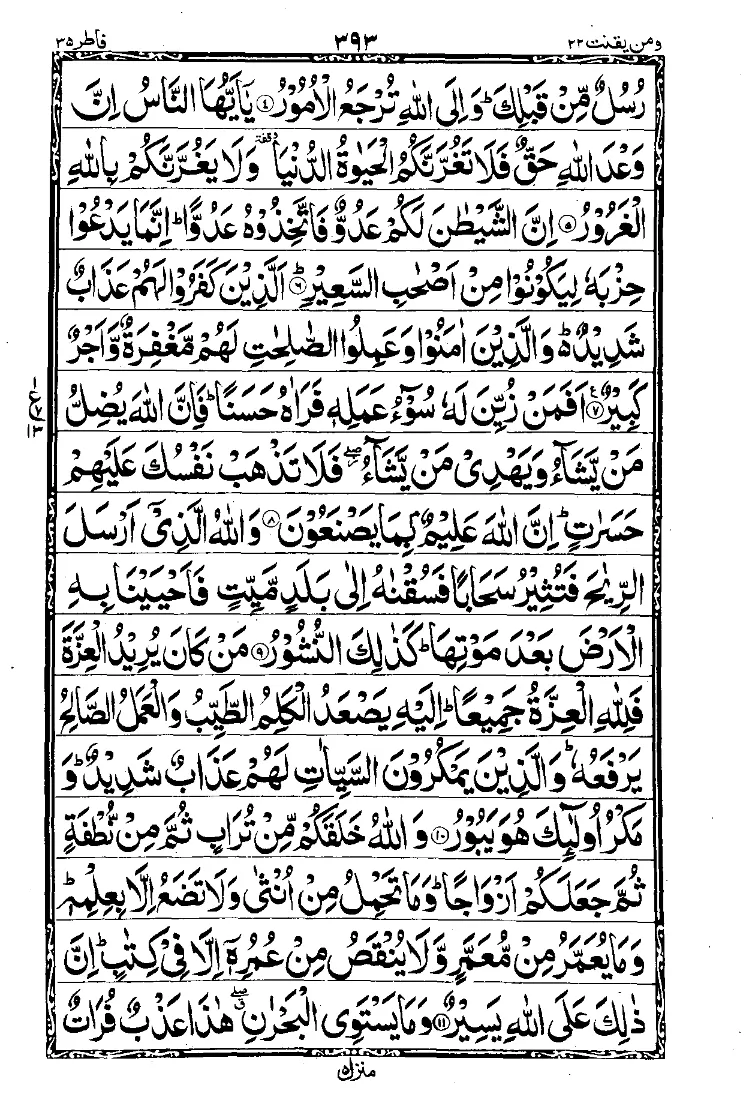 ومن یقنت ۲۲
۳۹۳
فاطر ۳۵
رُسُلٌ مِّنْ قَبْلِكَ ؕ وَاِلَى اللّٰهِ تُرْجَعُ الْاُمُوْرُ ۝۴ يٰۤاَيُّهَا النَّاسُ اِنَّ
وَعْدَ اللّٰهِ حَقٌّ فَلَا تَغُرَّنَّكُمُ الْحَيٰوةُ الدُّنْيَا وقفة وَلَا يَغُرَّنَّكُمْ بِاللّٰهِ
الْغَرُوْرُ ۝۵ اِنَّ الشَّيْطٰنَ لَكُمْ عَدُوٌّ فَاتَّخِذُوْهُ عَدُوًّا ؕ اِنَّمَا يَدْعُوْا
حِزْبَهٗ لِيَكُوْنُوْا مِنْ اَصْحٰبِ السَّعِيْرِ ؕ۝۶ اَلَّذِيْنَ كَفَرُوْا لَهُمْ عَذَابٌ
شَدِيْدٌ ؕ۬ وَالَّذِيْنَ اٰمَنُوْا وَعَمِلُوا الصّٰلِحٰتِ لَهُمْ مَّغْفِرَةٌ وَّاَجْرٌ
كَبِيْرٌ ۝۷ع اَفَمَنْ زُيِّنَ لَهٗ سُوْٓءُ عَمَلِهٖ فَرَاٰهُ حَسَنًا ؕ فَاِنَّ اللّٰهَ يُضِلُّ
ع ۷ ۱۳
مَنْ يَّشَآءُ وَيَهْدِيْ مَنْ يَّشَآءُ ۖ فَلَا تَذْهَبْ نَفْسُكَ عَلَيْهِمْ
حَسَرٰتٍ ؕ اِنَّ اللّٰهَ عَلِيْمٌۢ بِمَا يَصْنَعُوْنَ ۝۸ وَاللّٰهُ الَّذِيْۤ اَرْسَلَ
الرِّيٰحَ فَتُثِيْرُ سَحَابًا فَسُقْنٰهُ اِلٰى بَلَدٍ مَّيِّتٍ فَاَحْيَيْنَا بِهِ
الْاَرْضَ بَعْدَ مَوْتِهَا ؕ كَذٰلِكَ النُّشُوْرُ ۝۹ مَنْ كَانَ يُرِيْدُ الْعِزَّةَ
فَلِلّٰهِ الْعِزَّةُ جَمِيْعًا ؕ اِلَيْهِ يَصْعَدُ الْكَلِمُ الطَّيِّبُ وَالْعَمَلُ الصَّالِحُ
يَرْفَعُهٗ ؕ وَالَّذِيْنَ يَمْكُرُوْنَ السَّيِّاٰتِ لَهُمْ عَذَابٌ شَدِيْدٌ ؕ وَ
مَكْرُ اُولٰٓئِكَ هُوَ يَبُوْرُ ۝۱۰ وَاللّٰهُ خَلَقَكُمْ مِّنْ تُرَابٍ ثُمَّ مِنْ نُّطْفَةٍ
ثُمَّ جَعَلَكُمْ اَزْوَاجًا ؕ وَمَا تَحْمِلُ مِنْ اُنْثٰى وَلَا تَضَعُ اِلَّا بِعِلْمِهٖ ؕ
وَمَا يُعَمَّرُ مِنْ مُّعَمَّرٍ وَّلَا يُنْقَصُ مِنْ عُمُرِهٖۤ اِلَّا فِيْ كِتٰبٍ ؕ اِنَّ
ذٰلِكَ عَلَى اللّٰهِ يَسِيْرٌ ۝۱۱ وَمَا يَسْتَوِي الْبَحْرٰنِ ۖ هٰذَا عَذْبٌ فُرَاتٌ
منزل ۵